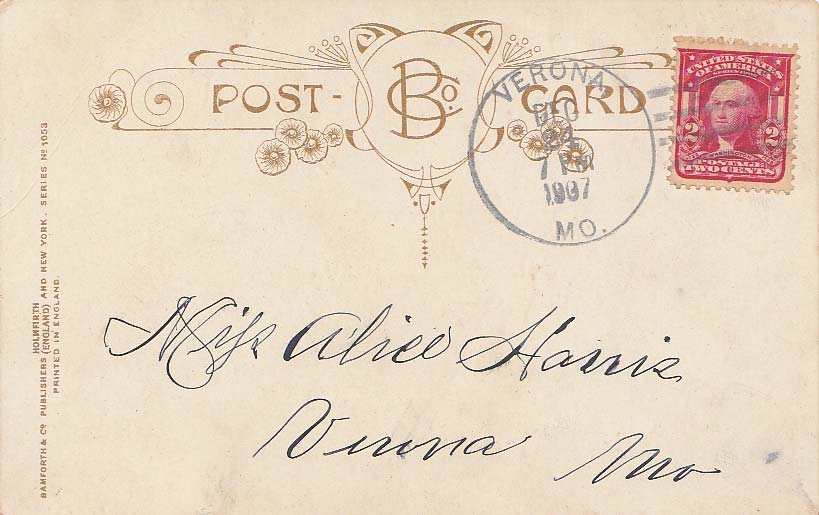 POST-
BCo.
CARD
VERONA,
DEC
24
7 PM
1907
MO.
UNITED STATES
OF AMERICA
SERIES 1902
2
2
WASHINGTON
POSTAGE
TWO CENTS
Miss Alice Harris
Verona Mo
BAMFORTH & Co PUBLISHERS HOLMFIRTH (ENGLAND) AND NEW YORK. SERIES No 1053
PRINTED IN ENGLAND.